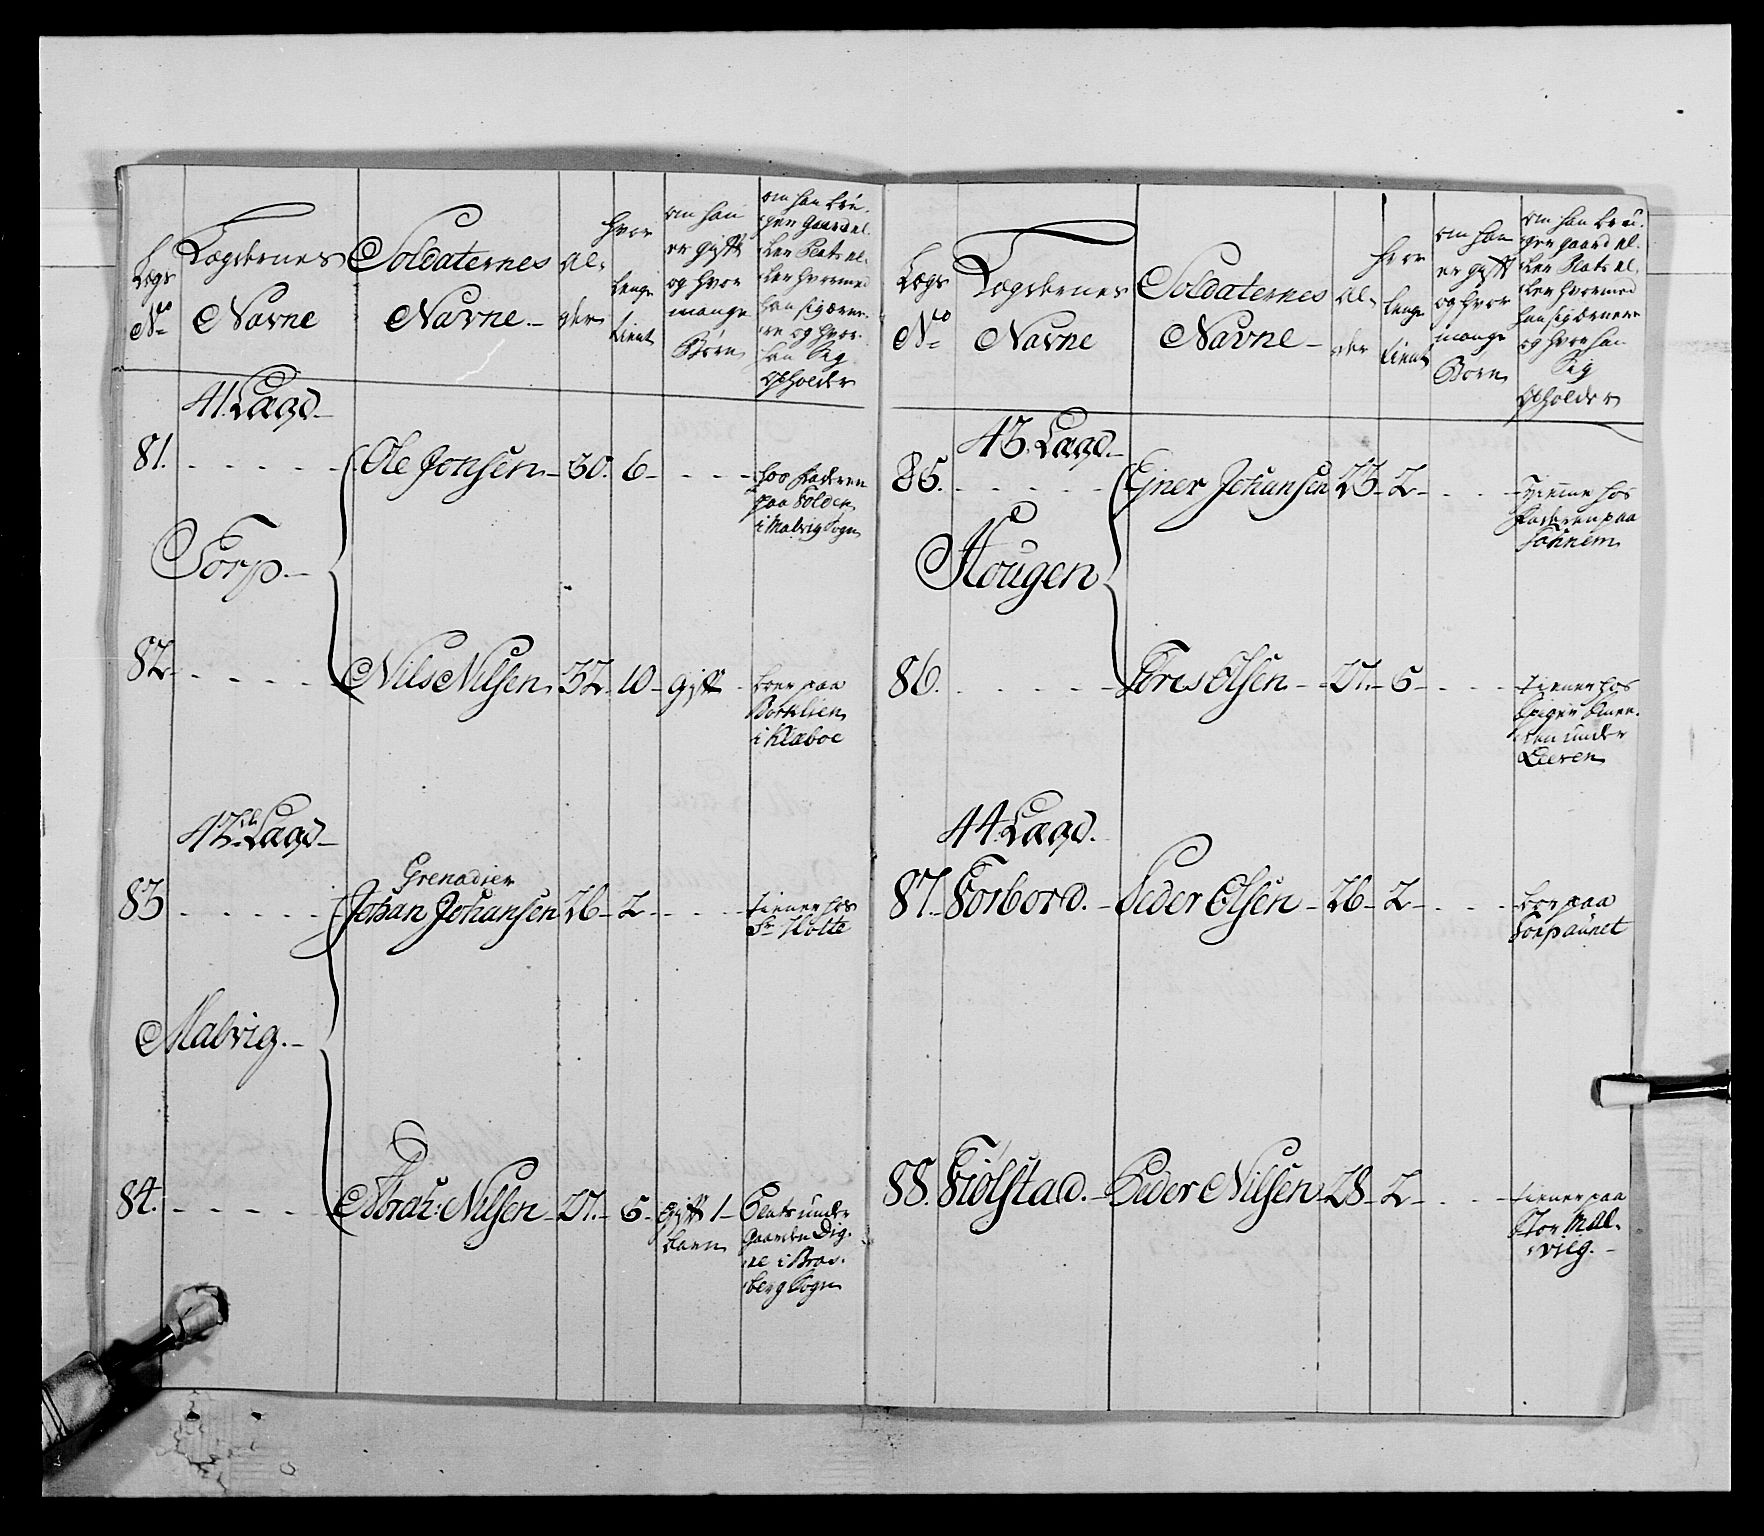 Lægs
No
Lægdernes
Navne
Soldaternes
Navne.
Al-
der
hvor
lenge
tient
om han
er gift
og hvor
mange
Børn
om han bru-
ger Gaard el-
ler Plats el-
ler hvormed
han sig ærner-
re og hvor
han sig
opholder
41. Lægd.
81. - - - - - Ole Jonsen - 30. 6 - - - - hos Faderen
paa Folden
i Malvig Sogn
Torp.
82. - - - - Nils Nilsen 32 10 - gift - boer paa
Bortlien
i Klæboe
42de Lægd
Grenadier
83 - - - - - Johan Johansen 26 - 2 - - - - tiener hos
Sr. Holte
Malvig.
84. - - - - - Abrah: Nilsen - 27. - 5 - gift 1 - Plats under
barn Gaarden Dig-
re i Brat-
berg Sogn
Lægs
No
Lægdernes
Navne
Soldaternes
Navne
Al-
der
hvor
lenge
tient
om han
er gift
og hvor
mange
Børn
om han bru-
ger gaard el-
ler Plats el-
ler hvormed
han sig ærnere
og hvor han
Sig
opholder
43. Lægd.
85. - - - - - Ejner Johansen 23 - 2 - - - - hiemme hos
Faderen paa
Hougen
86. - - - - - Tores Olsen - 27. - 5 - - - tiener hos
under
Leeren
44. Lægd.
87. Forbord. - Peder Olsen - 26 - 2 - - - - boer paa
Torpaunet
88. Fiølstad. - Peder Nilsen - 28 - 2 - - - - tiener paa
Stor Mal-
vieg. -